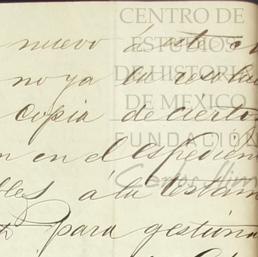 nuevo de este
no ya la resolu
copia de cierto
n en el Espedien
lles á la testam
para gestiona
CENTRO DE
ESTUDIOS
DE HISTORIA
DE MÉXICO
FUNDACIÓN
Carlos Slim